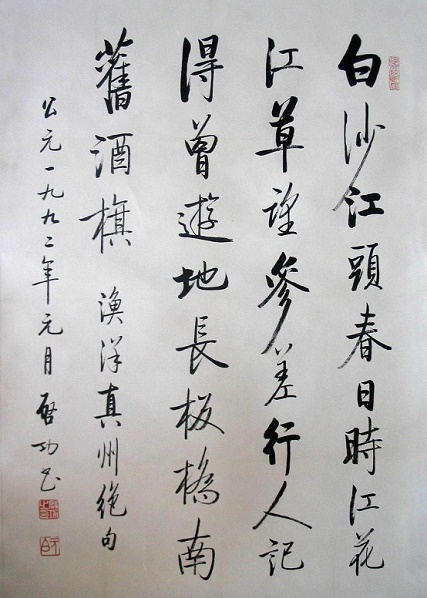 白沙江頭春日時江花
江草望參差行人記
得曾遊地長板橋南
舊酒旗 漁洋真州絕句
公元一九九二年元月 啓功書